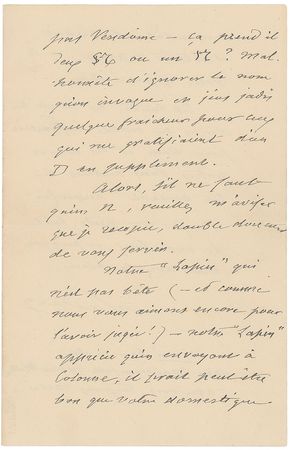 pas Vendôme — ça prend-il
deux SS ou un SS ? Mal-
honnête d'ignorer le nom
qu'on invoque en
quelque fraîcheur pour ceux
qui me gratifiaient d'un
D en supplément.
Alors, s'il ne faut
qu'un n, veuillez m'avise
que je recopie, double
de vous servir.
Notre "Lapin" qui
n'est pas bête (— et comme
nous vous aimons encore pour
l'avoir jugé !) — notre "Lapin"
apprécie qu'en envoyant à
Colonne, il serait peut-être
bon que votre domestique